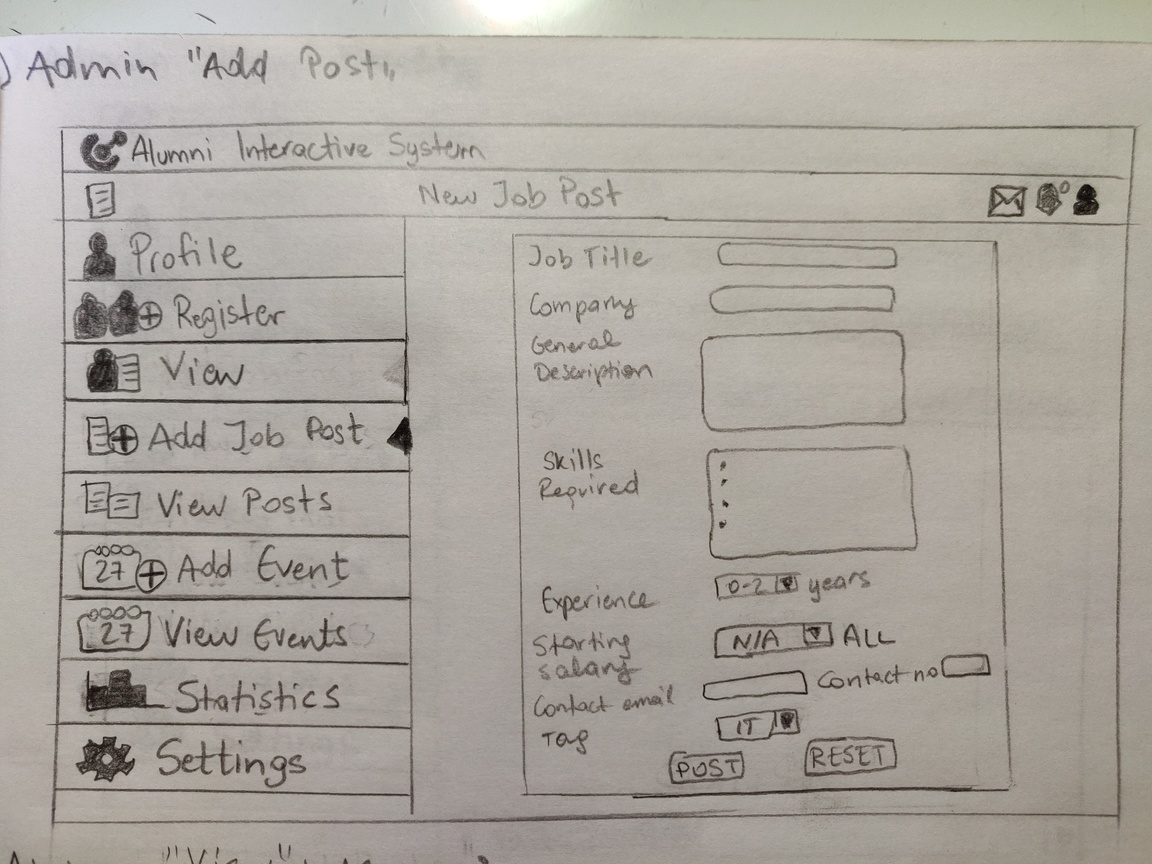 ) Admin "Add Post"
Alumni Interactive System
New Job Post
Profile
Register
View
Add Job Post
View Posts
27 Add Event
27 View Events
Statistics
Settings
Job Title
Company
General
Description
Skills
Required
Experience 0-2 years
Starting N/A ALL
salary
Contact email Contact no
Tag IT
POST RESET
"View"